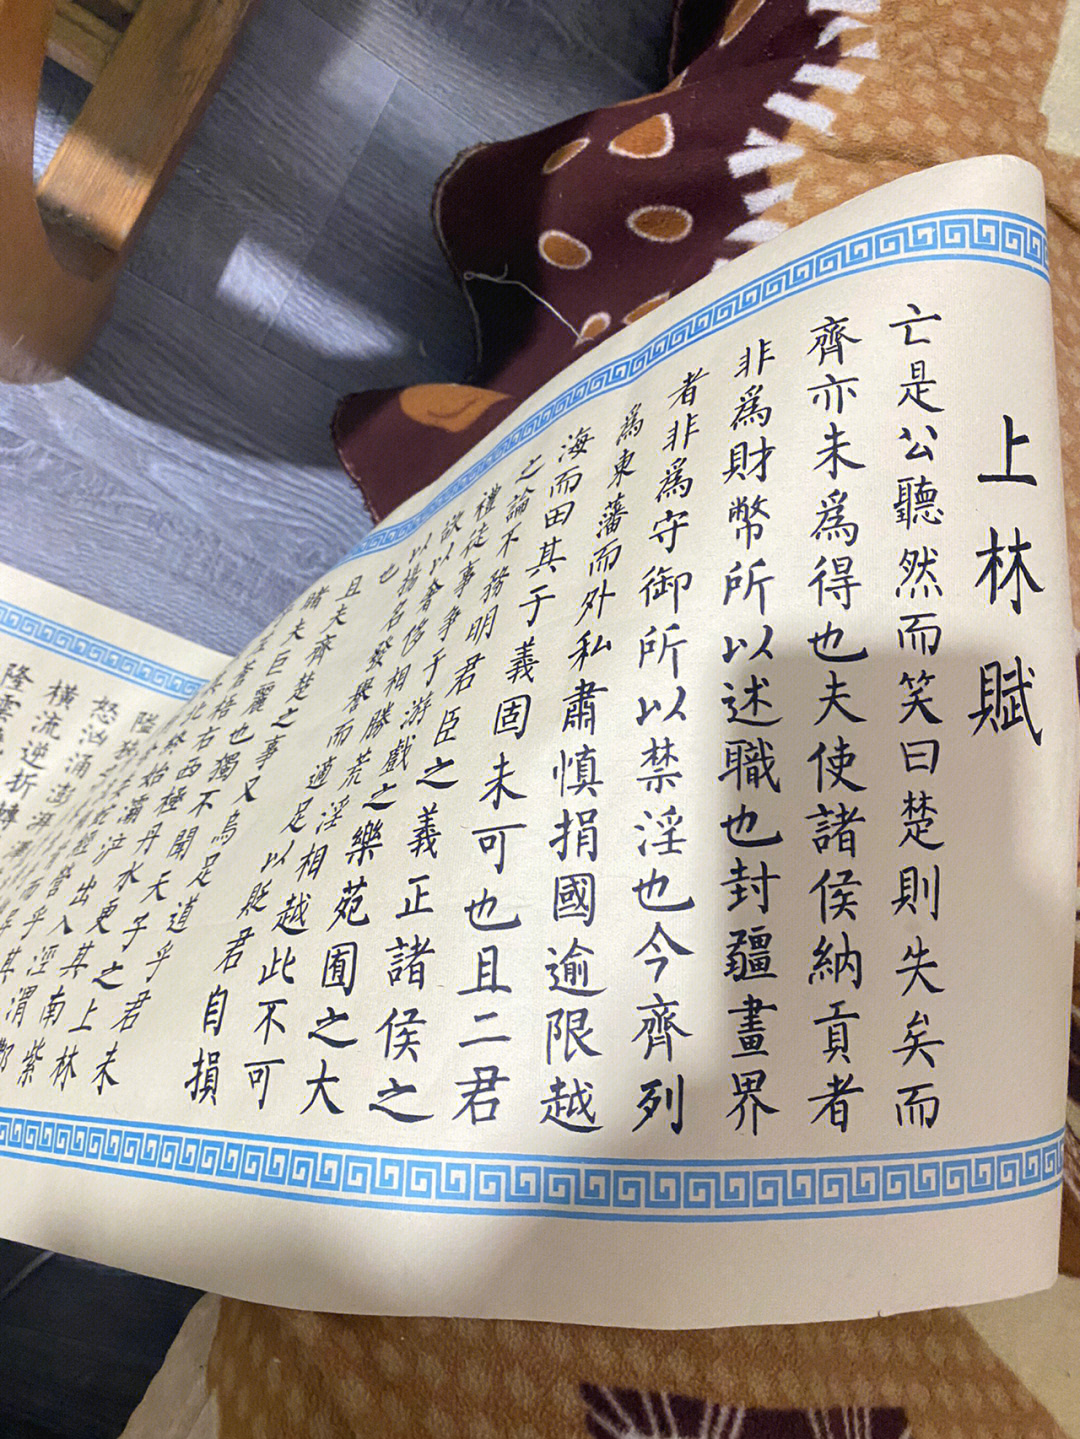 上林賦
亡是公聽然而笑曰楚則失矣而
齊亦未為得也夫使諸侯納貢者
非為財幣所以述職也封疆畫界
者非為守禦所以禁淫也今齊列
為東藩而外私肅慎捐國逾限越
海而田其于義固未可也且二君
之論不務明君臣之義正諸侯之
禮徒事爭于游戲之樂苑囿之大
欲以奢侈相勝荒淫相越此不可
以揚名發譽而適足以貶君自損
也
且夫齊楚之事又烏足道乎君未
睹夫巨麗也獨不聞天子之上林
蒼梧右西極丹水更其南紫
始灞滻出入涇渭
怒洶涌澎湃
橫流逆折轉
隆雲